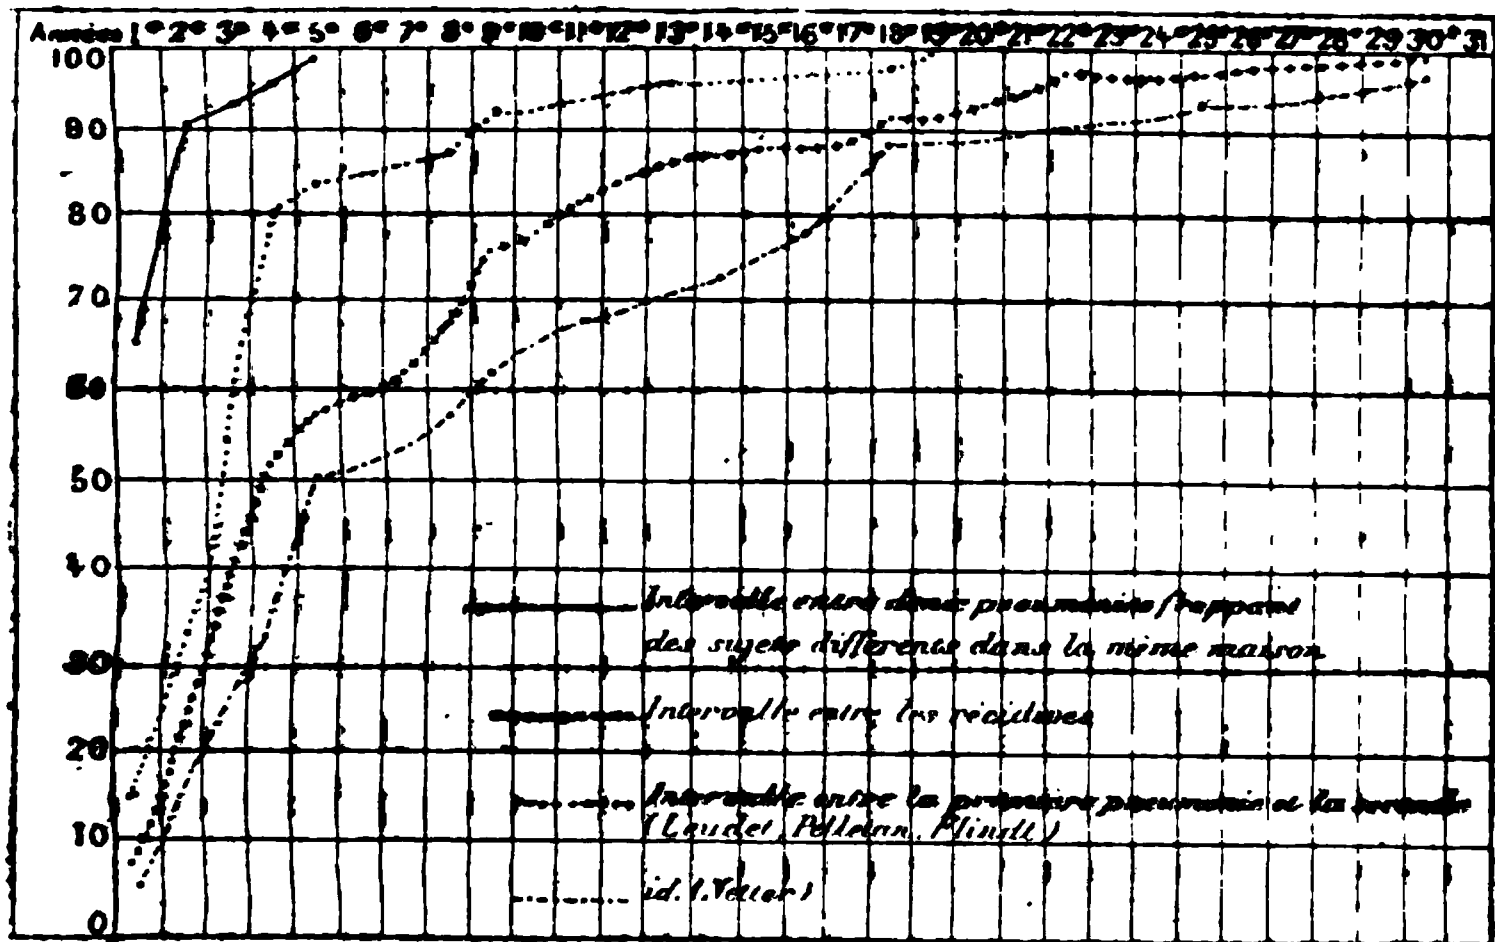 Années 1e 2e 3e 4e 5e 6e 7e 8e 9e 10e 11e 12e 13e 14e 15e 16e 17e 18e 19e 20e 21e 22e 23e 24e 25e 26e 27e 28e 29e 30e 31
100
90
80
70
60
50
40
30
20
10
0
Intervalle entre deux pneumonies frappant
des sujets différents dans la même maison
Intervalle entre les récidives
Intervalle entre la première pneumonie et la seconde
(Leudet, Pelletan, Flindt)
id. (Vetter)